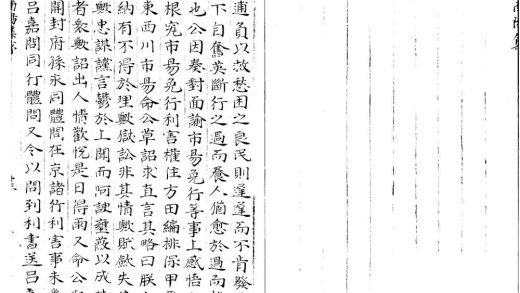 逋負以救愁困之良民則遑遑而不肯發
下自奮英斷行之過而養人猶愈於過而
也公因奏對面諭市易免行等事上感悟
根究市易免行利害權住方田編排保甲
東西川市易命公草詔求直言其略曰朕
納有不得於理歟獄訟非其情歟賦斂失
歟忠謀讜言鬱於上聞而阿諛壅蔽以成其
者衆歟詔出人情歡悅是日得雨又命公
開封府孫永同體問在京諸行利害事未
吕嘉問同行體問又令以問到利書送吕